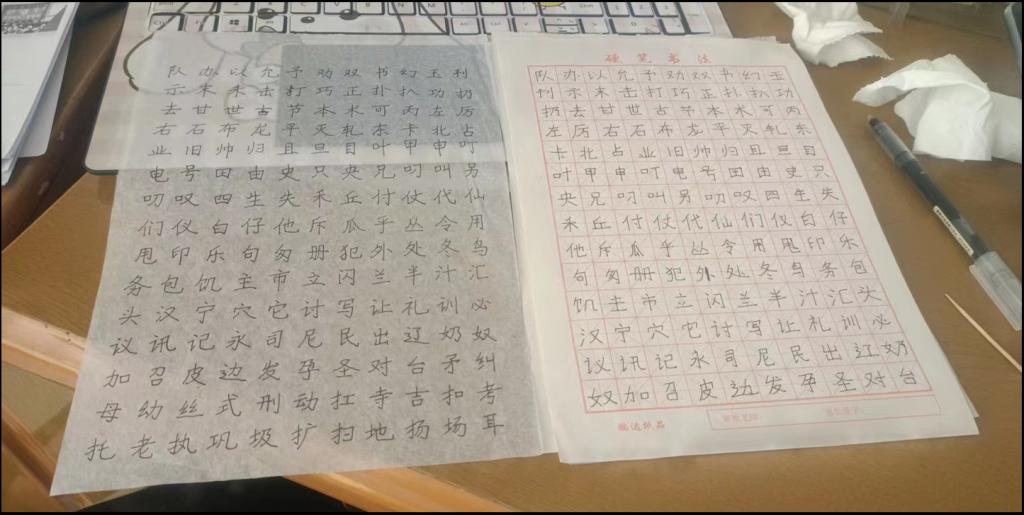 队 办 以 允 予 劝 双 书 幻 玉 刊
示 末 未 击 打 巧 正 扑 扒 功 扔
去 甘 世 古 节 本 术 可 丙 左 厉
右 石 布 龙 平 灭 轧 东 卡 北 占
业 旧 帅 归 且 旦 目 叶 甲 申 叮
电 号 田 由 史 只 央 兄 叼 叫 另
叨 叹 四 生 失 禾 丘 付 仗 代 仙
们 仪 白 仔 他 斥 瓜 乎 丛 令 用
甩 印 乐 句 匆 册 犯 外 处 冬 鸟
务 包 饥 主 市 立 闪 兰 半 汁 汇
头 汉 宁 穴 它 讨 写 让 礼 训 必
议 讯 记 永 司 尼 民 出 辽 奶 奴
加 召 皮 边 发 孕 圣 对 台 矛 纠
母 幼 丝 式 刑 动 扛 寺 吉 扣 考
托 老 执 巩 圾 扩 扫 地 扬 场 耳
硬笔书法
队 办 以 允 予 劝 双 书 幻 玉
刊 示 末 击 打 巧 正 扑 扒 功
扔 去 甘 世 古 节 本 术 可 丙
左 厉 右 石 布 龙 平 灭 轧 东
卡 北 占 业 旧 帅 归 且 旦 目
叶 甲 申 叮 电 号 田 由 史 只
央 兄 叼 叫 另 叨 叹 四 生 失
禾 丘 付 仗 代 仙 们 仪 白 仔
他 斥 瓜 乎 丛 令 用 甩 印 乐
句 匆 册 犯 外 处 冬 鸟 务 包
饥 主 市 立 闪 兰 半 汁 汇 头
汉 宁 穴 它 讨 写 让 礼 训 必
议 讯 记 永 司 尼 民 出 辽 奶
奴 加 召 皮 边 发 孕 圣 对 台